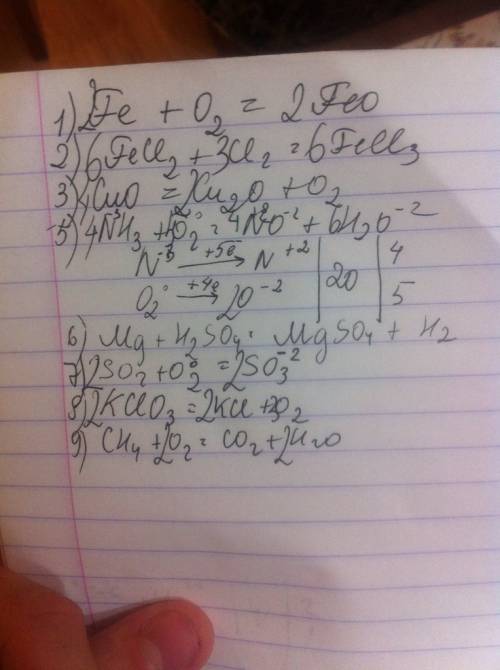 1) 2Fe + O2 = 2FeO
2) 6FeCl2 + 3Cl2 = 6FeCl3
3) 4CuO = 2Cu2O + O2
5) 4N-3H3 + 5O2° = 4N+2O-2 + 6H2O-2
N-3 +5e → N+2 | 20 | 4
O2° +4e → 2O-2 | | 5
6) Mg + H2SO4 = MgSO4 + H2
7) 2SO2 + O2° = 2SO3-2
8) 2KClO3 = 2KCl + 3O2
9) CH4 + 2O2 = CO2 + 2H2O